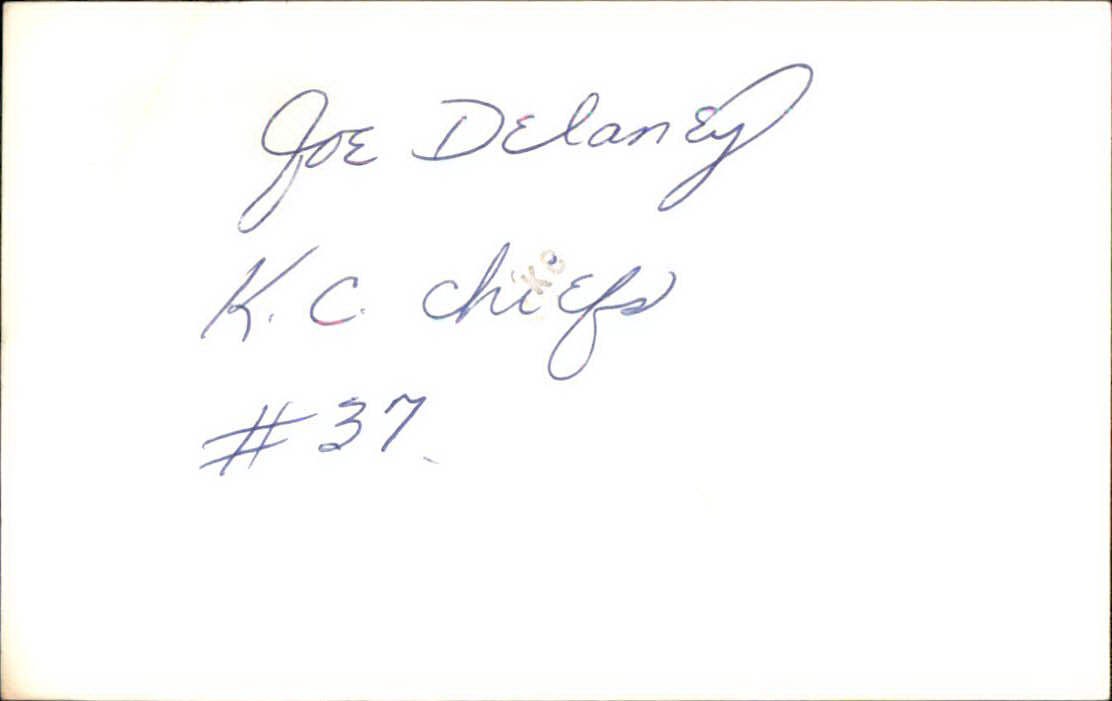 Joe Delaney
K.C. Chiefs
KC
#37